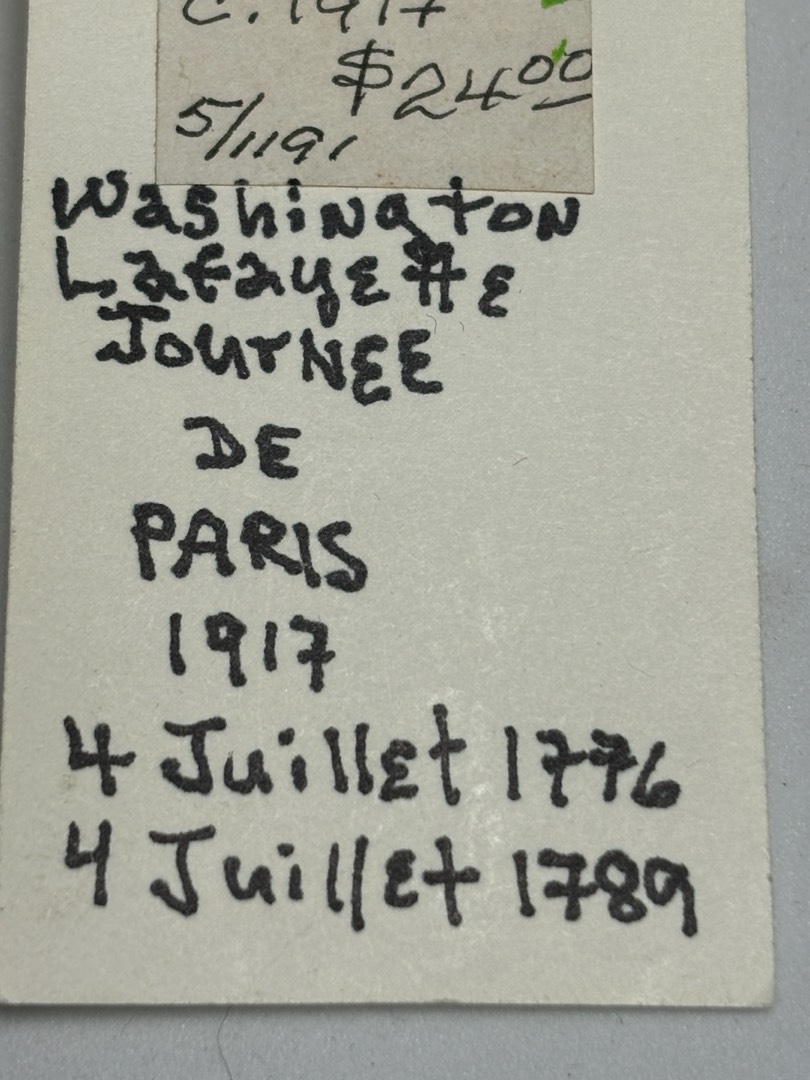 c. 1917
$24.00
5/1191
Washington
Lafayette
Journee
DE
PARIS
1917
4 Juillet 1776
4 Juillet 1789